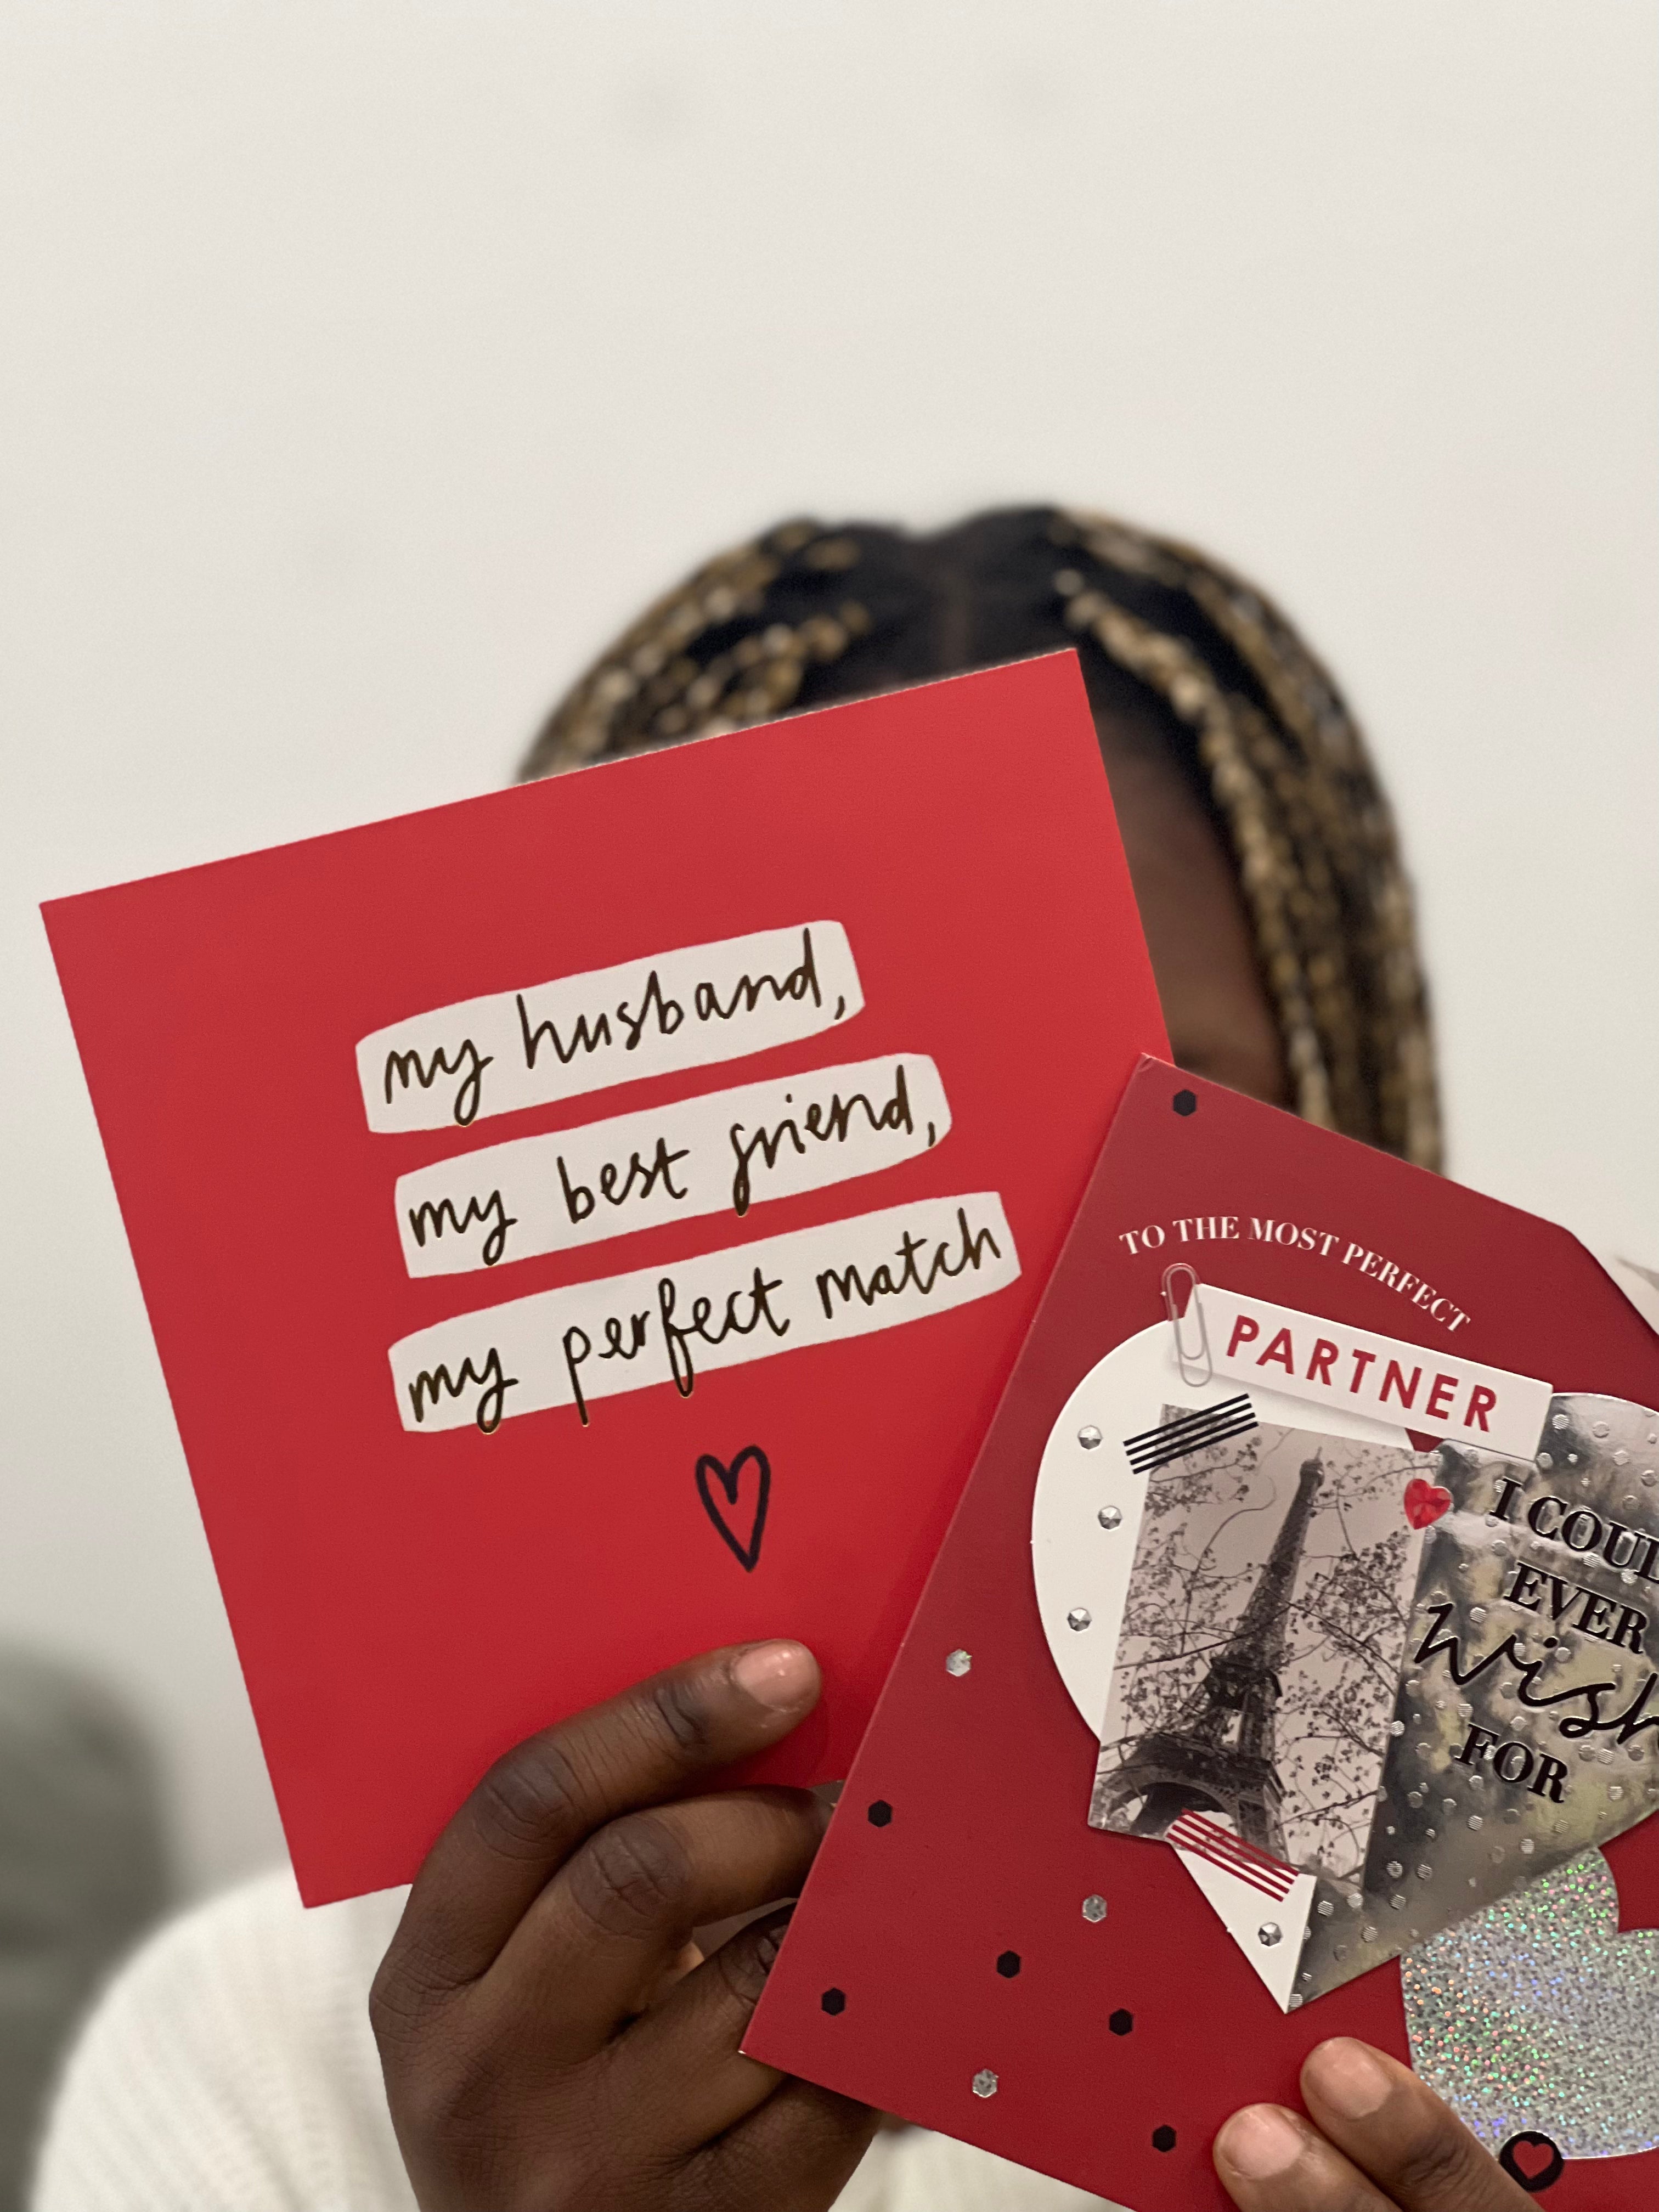 my husband,
my best friend,
my perfect match
TO THE MOST PERFECT
PARTNER
I COUL
EVER
Wish
FOR